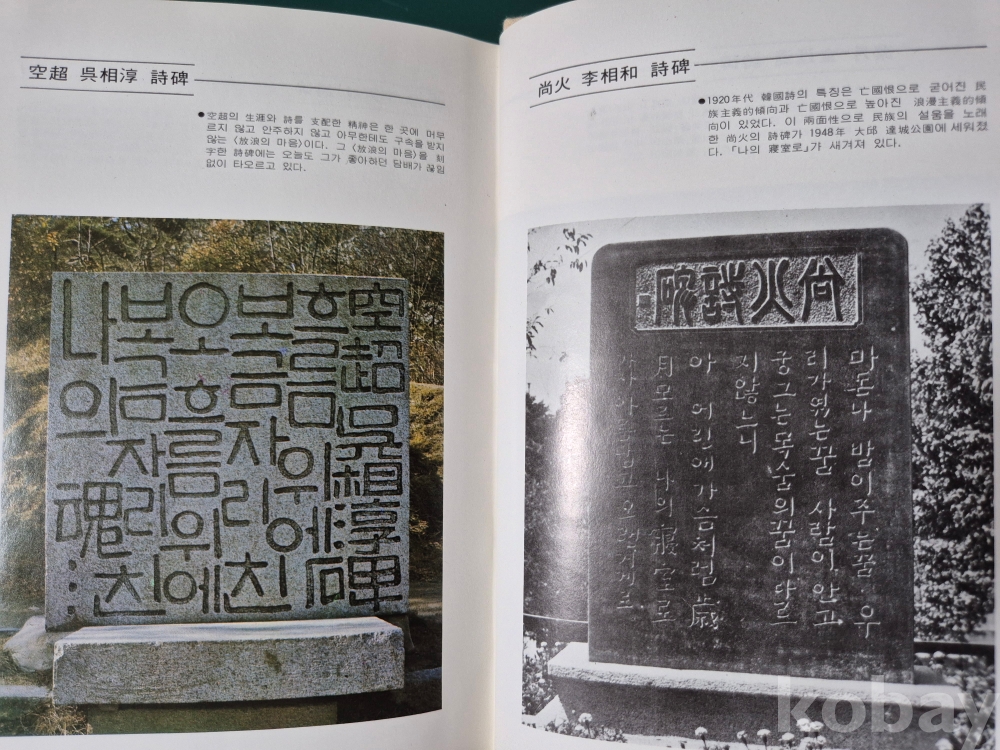 空超 吳相淳 詩碑
●空超의 生涯와 詩를 支配한 精神은 한 곳에 머무
르지 않고 안주하지 않고 아무한테도 구속을 받지
않는 〈放浪의 마음〉이다. 그 〈放浪의 마음〉을 刻
字한 詩碑에는 오늘도 그가 좋아하던 담배가 끊임
없이 타오르고 있다.
空超 吳相淳碑
흐름 위에
보금자리 친
오 흐름 위에
보금자리 친
나의 魂…
尙火 李相和 詩碑
●1920年代 韓國詩의 특징은 亡國恨으로 굳어진 民
族主義的傾向과 亡國恨으로 높아진 浪漫主義的傾
向이 있었다. 이 兩面性으로 民族의 설움을 노래
한 尙火의 詩碑가 1948年 大邱 達城公園에 세워졌
다. 「나의 寢室로」가 새겨져 있다.
尙火詩碑
마돈나 밤이주는꿈 우
리가얽는꿈 사람이안고
궁그는목숨의꿈이다르
지않느니
아 어린애가슴처럼 歲
月모르는 나의 寢室로
가자 아름답고 오랜거긔로
kobay